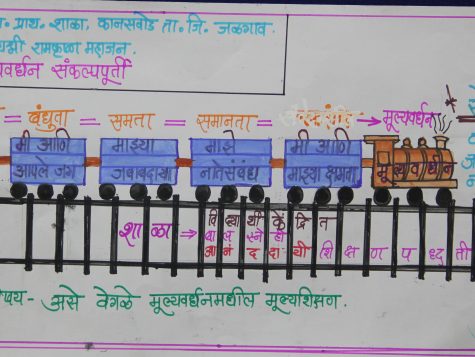 . प्राथ. शाळा, कानसवाडे ता. जि. जळगाव.
रामकृष्ण महाजन.
संकल्पपूर्ती
= बंधुता = समता = समानता = → मूल्यवर्धन
मी आणि आपले जग
माझ्या जबाबदाऱ्या
माझे नातेसंबंध
मी आणि माझ्या क्षमता
मूल्यवर्धन
शाळा → विद्यार्थी केंद्रित
बालस्नेही
आनंददायी शिक्षण पध्दती
- असे वेगळे मूल्यवर्धनमधील मूल्यशिक्षण.